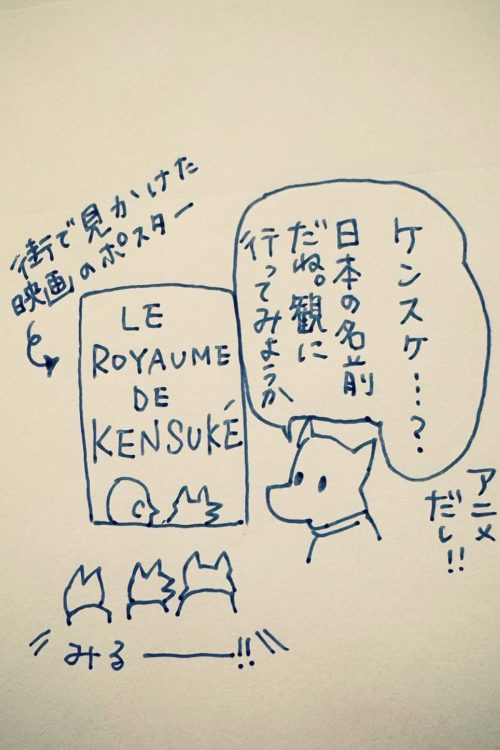 街で見かけた
映画のポスター
LE
ROYAUME
DE
KENSUKÉ
ケンスケ…?
日本の名前
だね。観に
行ってみようか
アニメ
だし!!
みる――!!